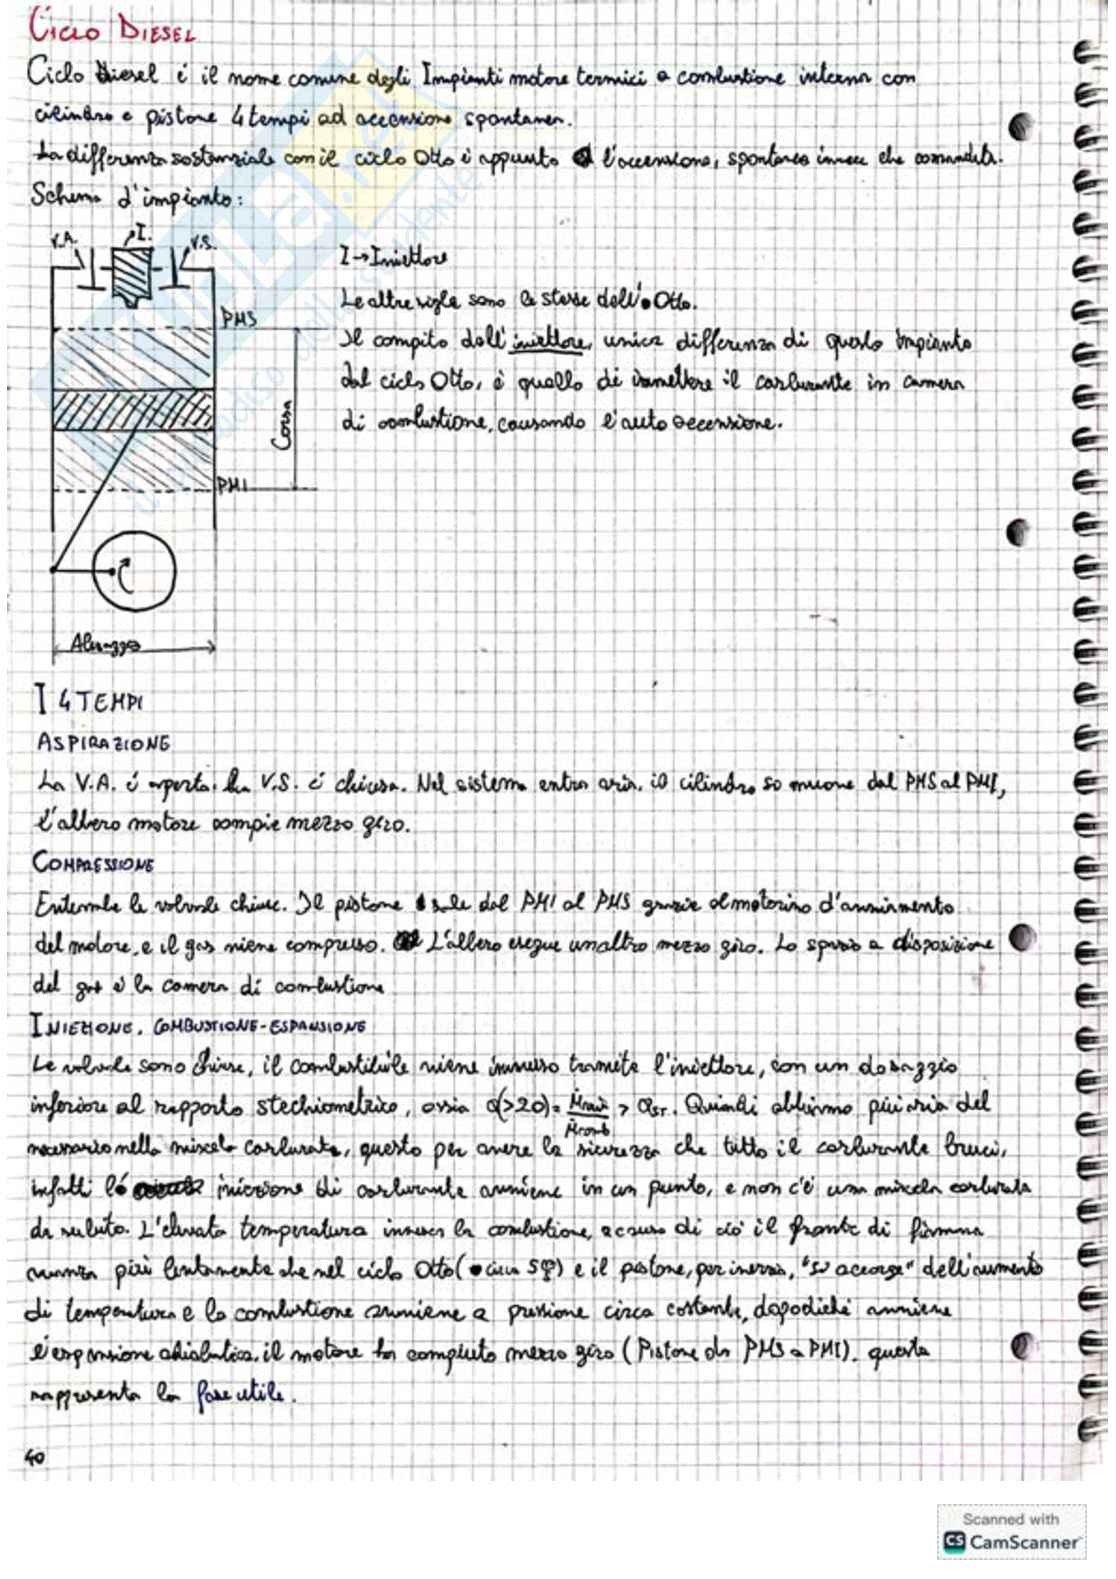 CICLO DIESEL
Ciclo Diesel è il nome comune degli Impianti motore termici a combustione interna con
cilindro e pistone 4 tempi ad accensione spontanea.
La differenza sostanziale con il ciclo Otto è appunto l'accensione, spontanea invece che comandata.
Schema d'impianto:
V.A. I. V.S.
I→Iniettore
Le altre sigle sono le stesse dell' Otto.
PMS
Il compito dell'iniettore, unica differenza di questo impianto
dal ciclo Otto, è quello di immettere il carburante in camera
di combustione, causando l'auto accensione.
Corsa
PMI
Alesaggio
I 4 TEMPI
ASPIRAZIONE
La V.A. è aperta. La V.S. è chiusa. Nel sistema entra aria, il cilindro si muove dal PMS al PMI,
l'albero motore compie mezzo giro.
COMPRESSIONE
Entrambe le valvole chiuse. Il pistone sale dal PMI al PMS grazie al motorino d'avviamento
del motore, e il gas viene compresso. L'albero esegue un altro mezzo giro. Lo spazio a disposizione
del gas è la camera di combustione
INIEZIONE, COMBUSTIONE-ESPANSIONE
Le valvole sono chiuse, il combustibile viene immesso tramite l'iniettore, con un dosaggio
inferiore al rapporto stechiometrico, ossia α(>20)= ṁaria/ṁcomb > αST. Quindi abbiamo più aria del
necessario nella miscela carburata, questo per avere la sicurezza che tutto il carburante bruci,
infatti l' iniezione di carburante avviene in un punto, e non c'è una miscela carburata
da subito. L'elevata temperatura innesca la combustione, a causa di ciò il fronte di fiamma
avanza più lentamente che nel ciclo Otto ( circa ) e il pistone, per inerzia, "si accorge" dell'aumento
di temperatura e la combustione avviene a pressione circa costante, dopodiché avviene
l'espansione adiabatica, il motore ha compiuto mezzo giro (Pistone da PMS a PMI). questa
rappresenta la fase utile.
40
Scanned with
CS CamScanner